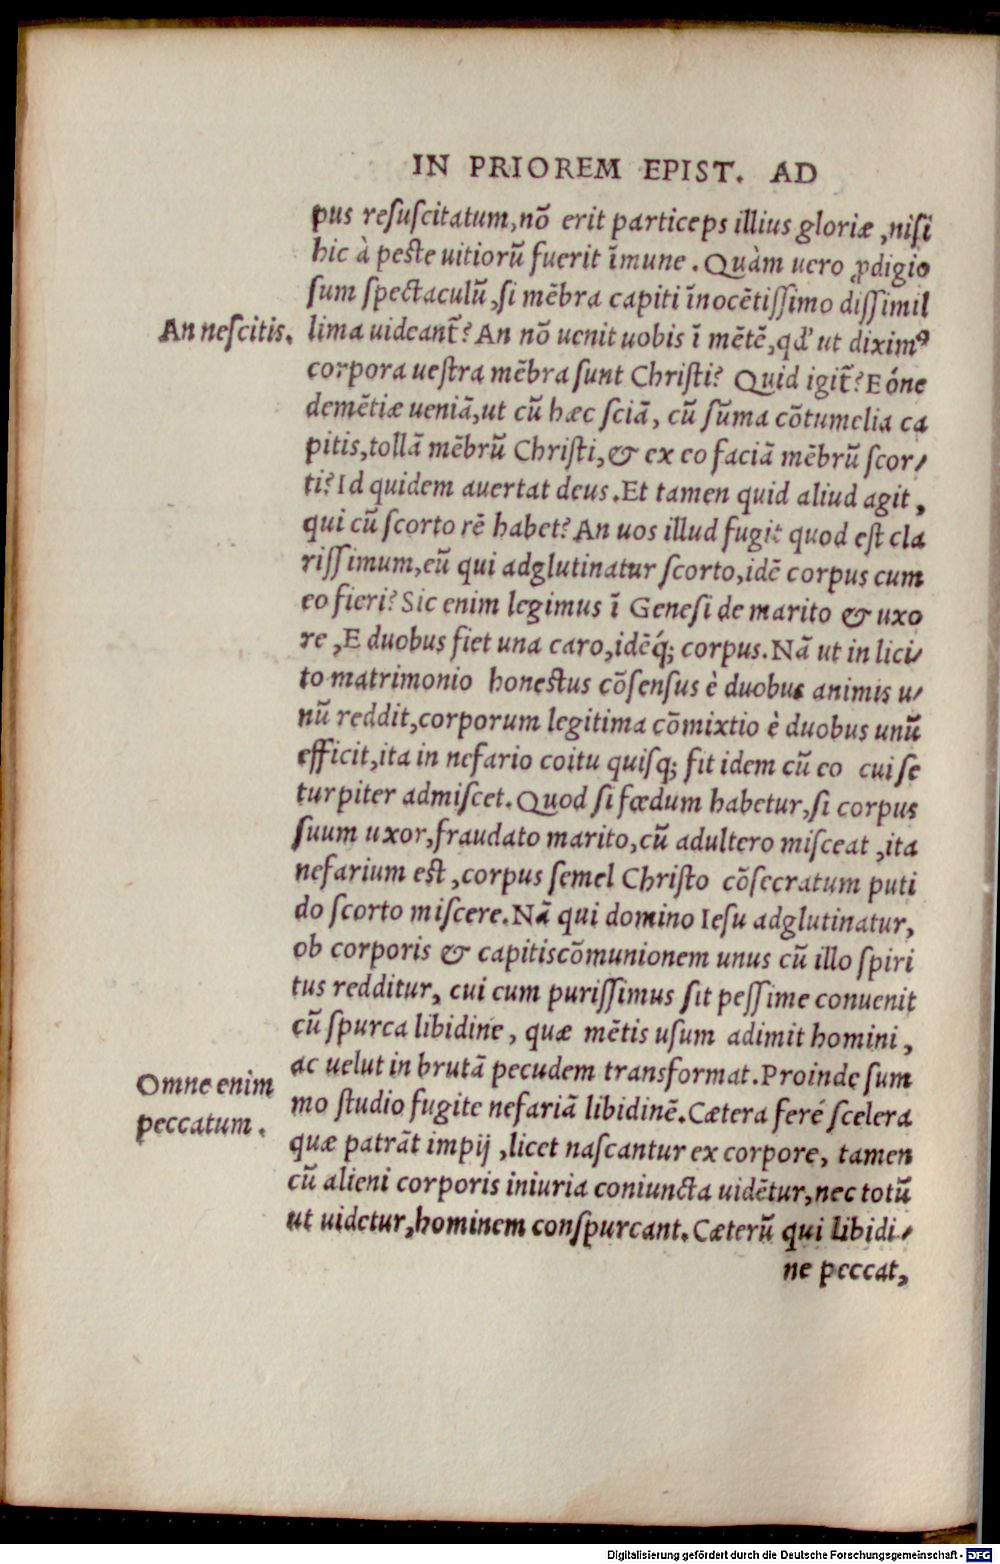 IN PRIOREM EPIST. AD
pus reſuſcitatum,nō erit particeps illius gloriæ ,niſi
hic à peſte uitiorū fuerit īmune . Quàm uero ꝓdigio
ſum ſpectaculū,ſi mēbra capiti īnocētiſſimo diſſimil
An neſcitis.
lima uideant̄? An nō uenit uobis ī mētē,qd' ut diximꝰ
corpora ueſtra mēbra ſunt Chriſti? Quid igit̄? Eóne
demētiæ ueniā,ut cū hæc ſciā, cū ſūma cōtumelia ca
pitis,tollā mēbrū Chriſti,& ex eo faciā mēbrū ſcor⸗
ti? Id quidem auertat deus.Et tamen quid aliud agit ,
qui cū ſcorto rē habet? An uos illud fugit quod eſt cla
riſſimum,eū qui adglutinatur ſcorto,idē corpus cum
eo fieri? Sic enim legimus ī Geneſi de marito & uxo
re ,E duobus fiet una caro,idēq́; corpus.Nā ut in lici⸗
to matrimonio honeſtus cōſenſus è duobus animis u⸗
nū reddit,corporum legitima cōmixtio è duobus unū
efficit,ita in nefario coitu quiſq; fit idem cū eo cui ſe
turpiter admiſcet.Quod ſi fœdum habetur,ſi corpus
ſuum uxor,fraudato marito,cū adultero miſceat ,ita
nefarium eſt ,corpus ſemel Chriſto cōſecratum puti
do ſcorto miſcere.Nā qui domino Ieſu adglutinatur,
ob corporis & capitiscōmunionem unus cū illo ſpiri
tus redditur, cui cum puriſſimus ſit peſſime conuenit
cū ſpurca libidine , quæ mētis uſum adimit homini ,
ac uelut in brutā pecudem transformat.Proinde ſum
Omne enim
peccatum .
mo ſtudio fugite nefariā libidinē.Cætera feré ſcelera
quæ patrāt impij ,licet naſcantur ex corpore, tamen
cū alieni corporis iniuria coniuncta uidētur,nec totū
ut uidetur,hominem conſpurcant.Cæterū qui libidi⸗
ne peccat,
Digitalisierung gefördert durch die Deutsche Forschungsgemeinschaft - DFG